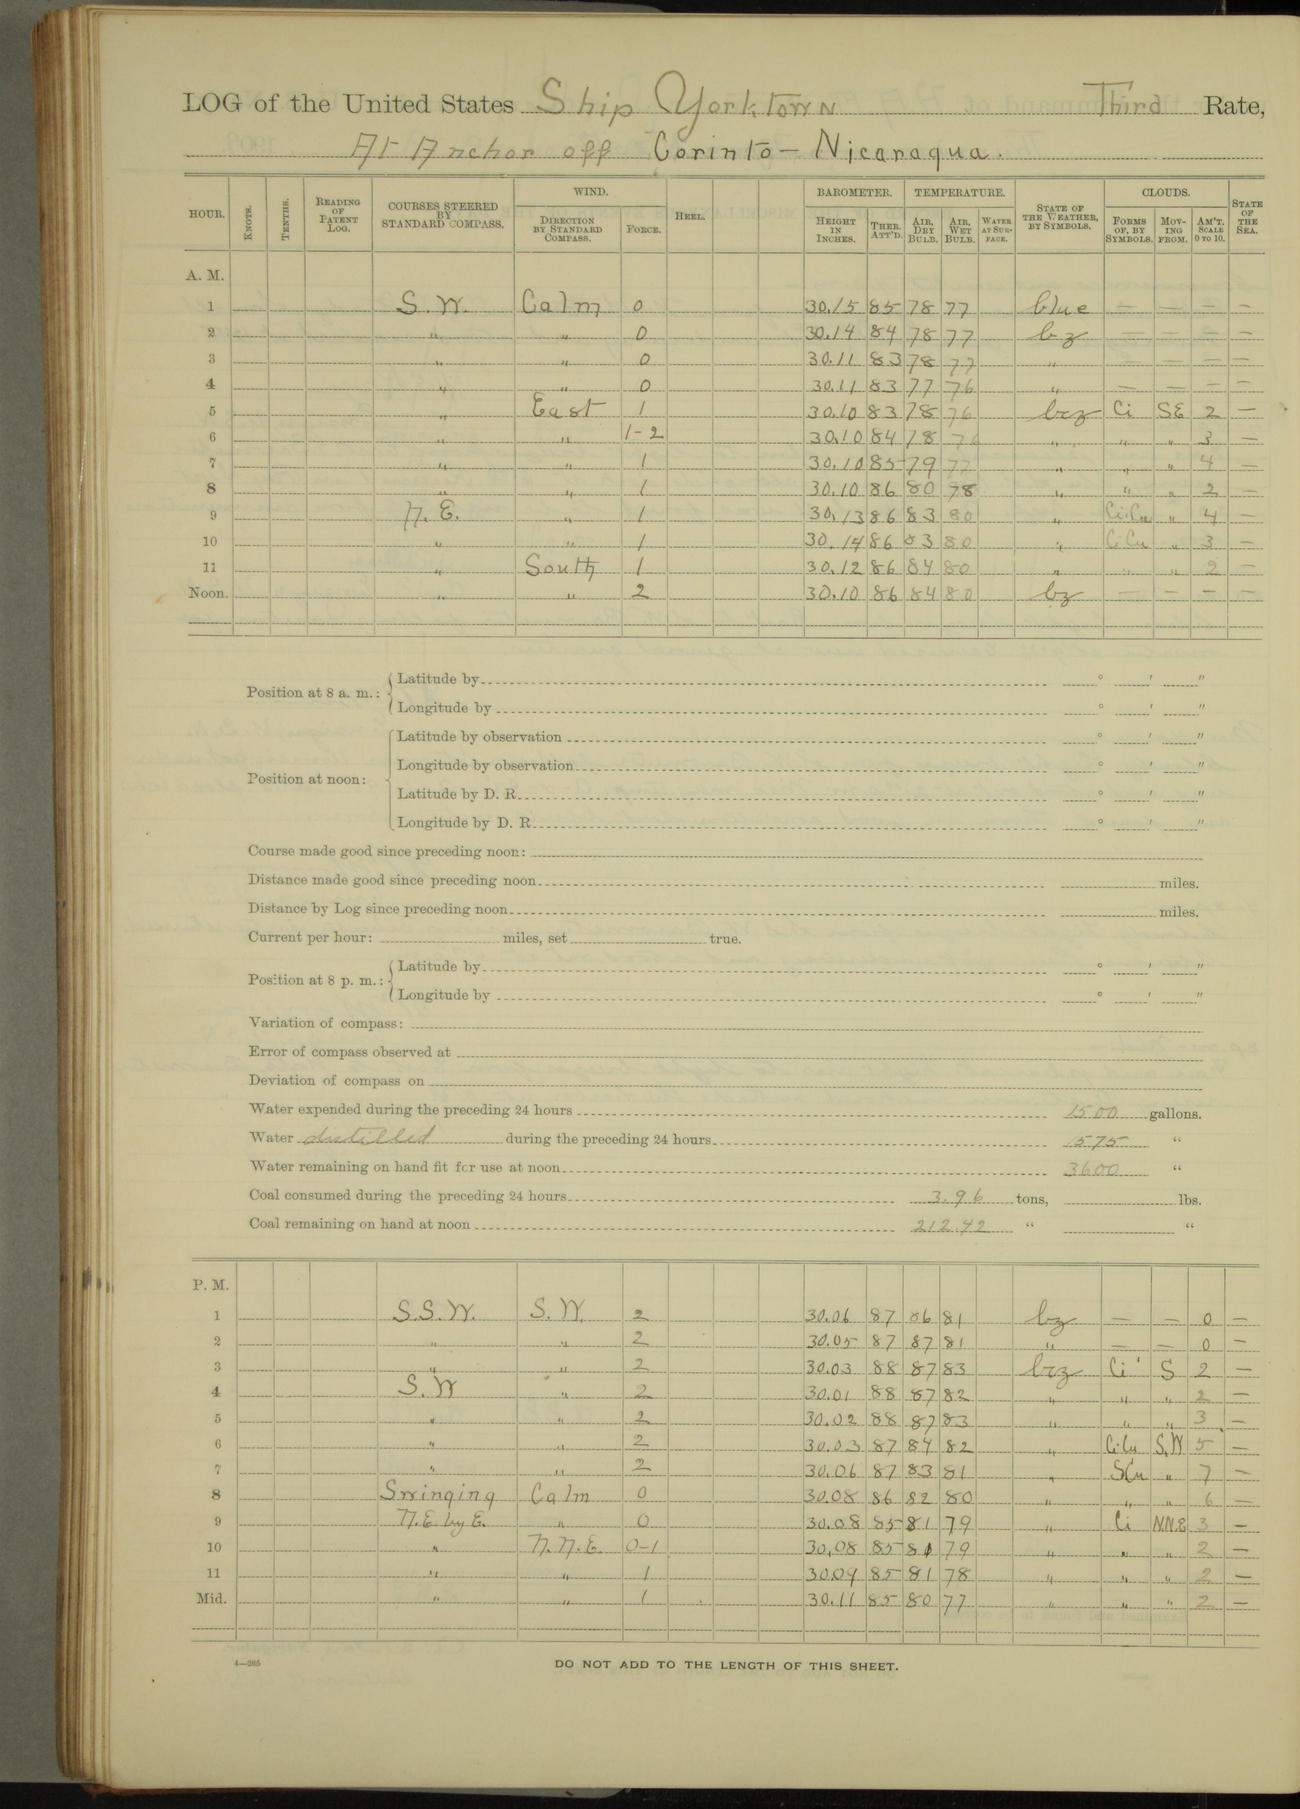 LOG of the United States Ship Yorktown Third Rate,
At Anchor off Corinto – Nicaragua.
HOUR. KNOTS. TENTHS. READING OF PATENT LOG. COURSES STEERED BY STANDARD COMPASS. WIND. DIRECTION BY STANDARD COMPASS. FORCE. HEEL. BAROMETER. HEIGHT IN INCHES. THER. ATT'D. TEMPERATURE. AIR, DRY BULB. AIR, WET BULB. WATER AT SURFACE. STATE OF THE WEATHER, BY SYMBOLS. CLOUDS. FORMS OF, BY SYMBOLS. MOVING FROM. AM'T. SCALE 0 TO 10. STATE OF THE SEA.
A. M.
1 S. W. Calm 0 30.15 85 78 77 blue — — — —
2 " " 0 30.14 84 78 77 bz — — — —
3 " " 0 30.11 83 78 77 " — — — —
4 " " 0 30.11 83 77 76 " — — — —
5 " East 1 30.10 83 78 76 bcz Ci SE 2 —
6 " " 1-2 30.10 84 78 76 " " " 3 —
7 " " 1 30.10 85 79 77 " " " 4 —
8 " " 1 30.10 86 80 78 " " " 2 —
9 N. E. " 1 30.13 86 83 80 " Ci.Cu " 4 —
10 " " 1 30.14 86 83 80 " Ci Cu " 3 —
11 " South 1 30.12 86 84 80 " " " 2 —
Noon. " " 2 30.10 86 84 80 bz — — — —
Position at 8 a. m.: Latitude by ° ′ ″
Longitude by ° ′ ″
Position at noon: Latitude by observation ° ′ ″
Longitude by observation ° ′ ″
Latitude by D. R. ° ′ ″
Longitude by D. R. ° ′ ″
Course made good since preceding noon:
Distance made good since preceding noon miles.
Distance by Log since preceding noon miles.
Current per hour: miles, set true.
Position at 8 p. m.: Latitude by ° ′ ″
Longitude by ° ′ ″
Variation of compass:
Error of compass observed at
Deviation of compass on
Water expended during the preceding 24 hours 1500 gallons.
Water distilled during the preceding 24 hours 1575 "
Water remaining on hand fit for use at noon 3600 "
Coal consumed during the preceding 24 hours 3.96 tons, lbs.
Coal remaining on hand at noon 212.42 " "
P. M.
1 S.S.W. S. W. 2 30.06 87 86 81 bz — — 0 —
2 " " 2 30.05 87 87 81 " — — 0 —
3 " " 2 30.03 88 87 83 bcz Ci S 2 —
4 S. W " 2 30.01 88 87 82 " " " 2 —
5 " " 2 30.02 88 87 83 " " " 3 —
6 " " 2 30.03 87 84 82 " Ci Cu S.W 5 —
7 " " 2 30.06 87 83 81 " SCu " 7 —
8 Swinging Calm 0 30.08 86 82 80 " " " 6 —
9 N.E. by E. " 0 30.08 85 81 79 " Ci N.N.E 3 —
10 " N. N. E. 0-1 30.08 85 81 79 " " " 2 —
11 " " 1 30.09 85 81 78 " " " 2 —
Mid. " " 1 30.11 85 80 77 " " " 2 —
4—265 DO NOT ADD TO THE LENGTH OF THIS SHEET.